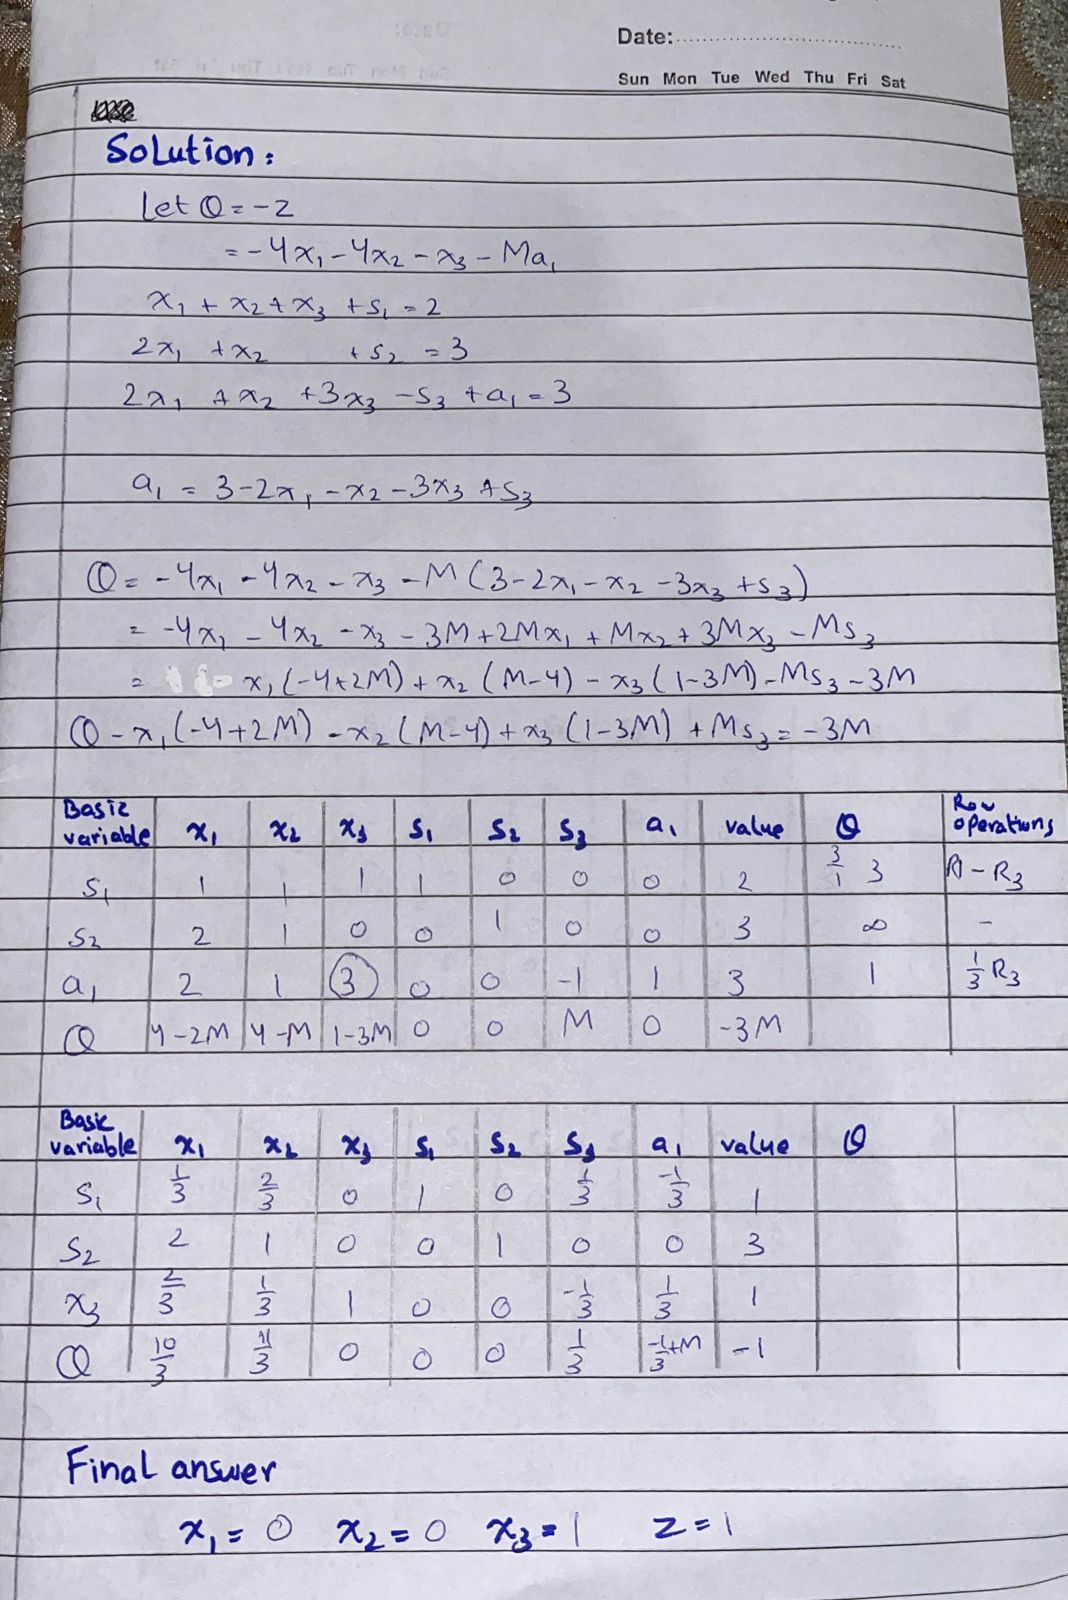 Date:
Sun Mon Tue Wed Thu Fri Sat
Solution:
Let Q = -z
= -4x₁ - 4x₂ - x₃ - Ma₁
x₁ + x₂ + x₃ + s₁ = 2
2x₁ + x₂ + s₂ = 3
2x₁ + x₂ + 3x₃ - s₃ + a₁ = 3
a₁ = 3 - 2x₁ - x₂ - 3x₃ + s₃
Q = -4x₁ - 4x₂ - x₃ - M(3 - 2x₁ - x₂ - 3x₃ + s₃)
= -4x₁ - 4x₂ - x₃ - 3M + 2Mx₁ + Mx₂ + 3Mx₃ - Ms₃
= x₁(-4+2M) + x₂(M-4) - x₃(1-3M) - Ms₃ - 3M
Q - x₁(-4+2M) - x₂(M-4) + x₃(1-3M) + Ms₃ = -3M
Basic variable x₁ x₂ x₃ s₁ s₂ s₃ a₁ value Θ Row operations
s₁ 1 1 1 1 0 0 0 2 3/1 3 R1 - R₃
s₂ 2 1 0 0 1 0 0 3 ∞ -
a₁ 2 1 3 0 0 -1 1 3 1 1/3 R₃
Q 4-2M 4-M 1-3M 0 0 M 0 -3M
Basic variable x₁ x₂ x₃ s₁ s₂ s₃ a₁ value Θ
s₁ 1/3 2/3 0 1 0 1/3 -1/3 1
s₂ 2 1 0 0 1 0 0 3
x₃ 2/3 1/3 1 0 0 -1/3 1/3 1
Q 10/3 11/3 0 0 0 1/3 -1/3+M -1
Final answer
x₁ = 0 x₂ = 0 x₃ = 1 z = 1